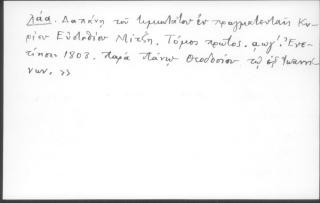 λάα. Δαπάνῃ τοῦ τιμιωτάτου ἐν πραγματευταῖς Κυ-
ρίου Εὐσταθίου Μίτζη. Τόμος πρῶτος. αωγ'. Ἐνε-
τίησι 1803. παρὰ Πάνῳ Θεοδοσίου τῷ ἐξ Ἰωαννί-
νων. »